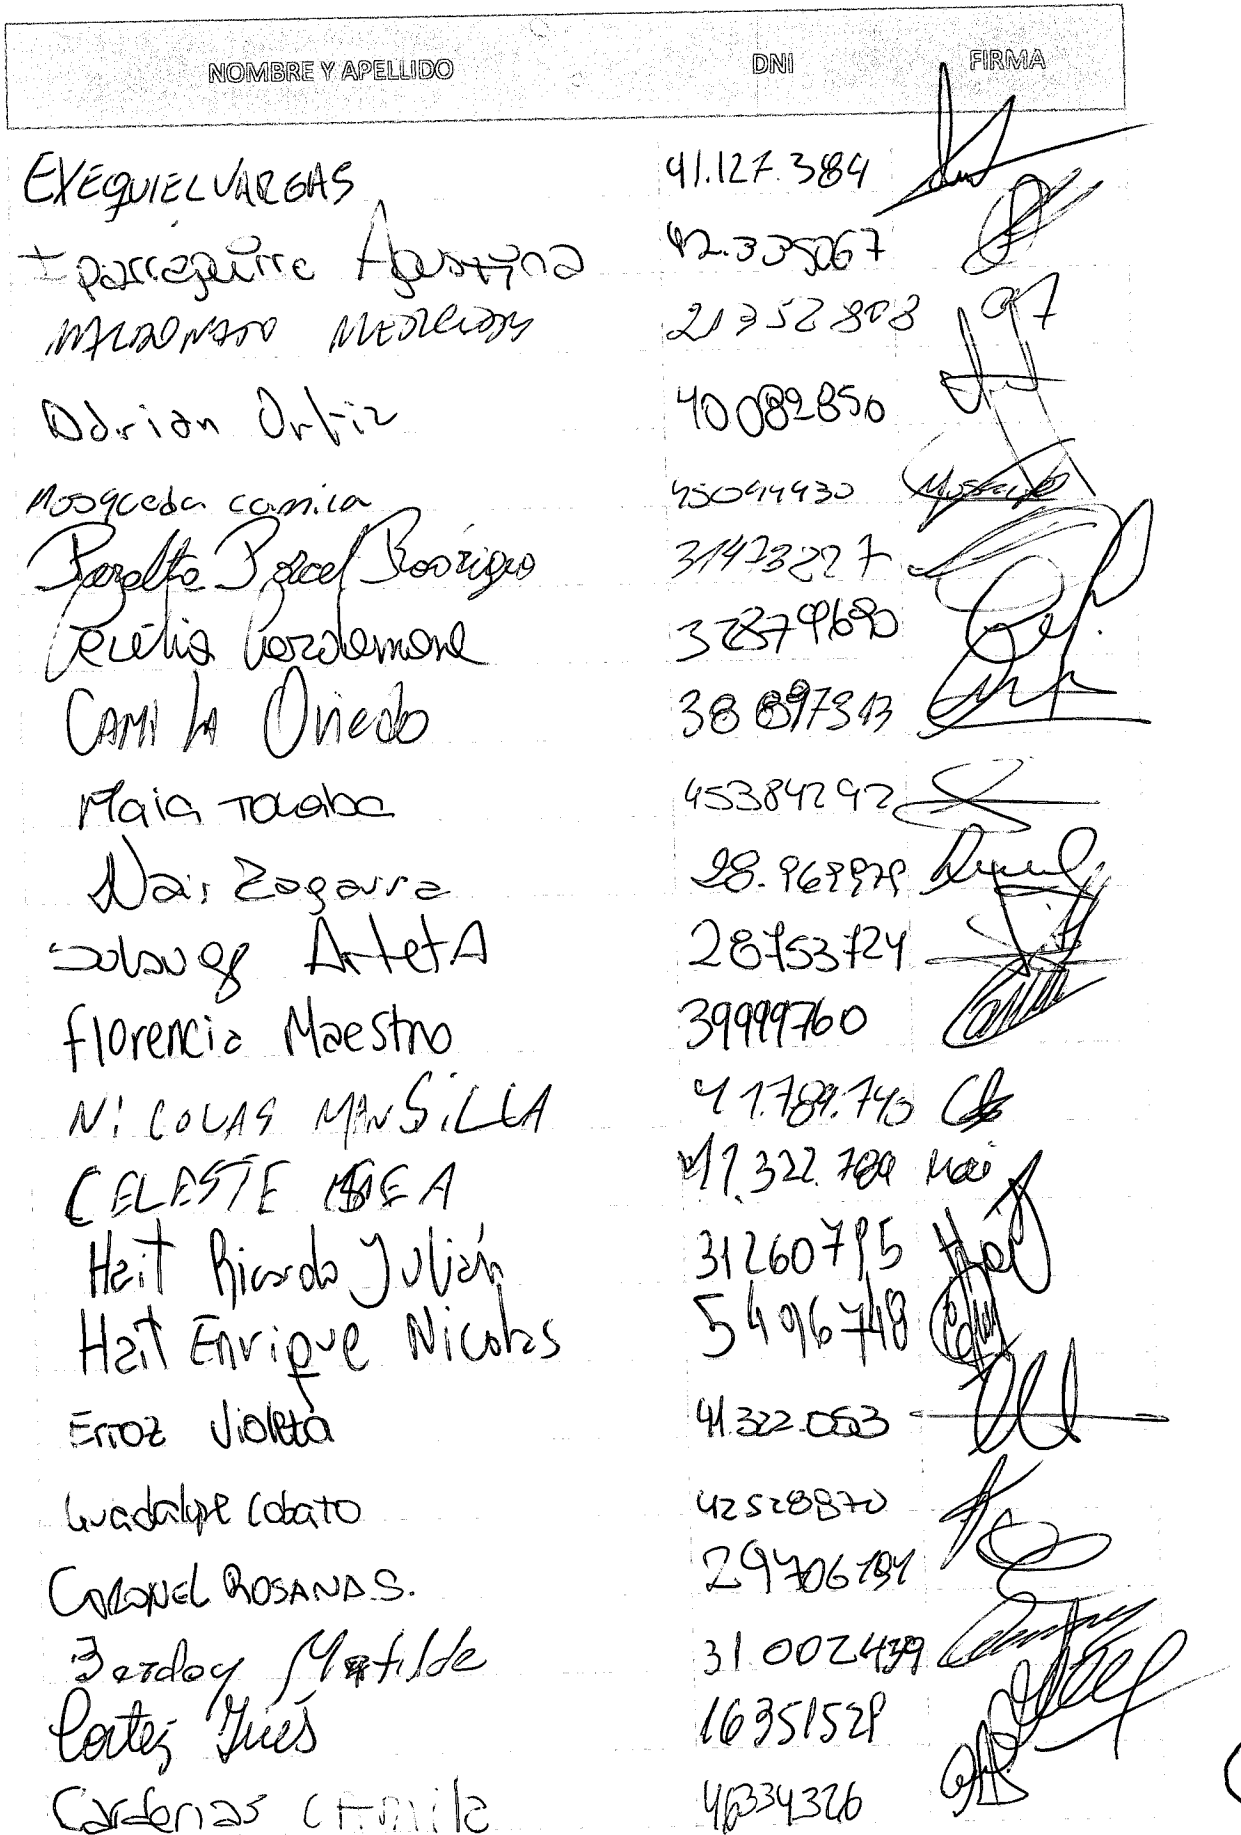 NOMBRE Y APELLIDO DNI FIRMA
EXEQUIEL VARGAS 41.127.384
Iparraguirre Agostina 42.335067
MALDONADO 21352808
Adrian Ortiz 40082850
Mosqueda camila 45044930
Peralta Rodrigo 31473227
Cecilia 32879690
CAMILA Oviedo 38897313
Maia 45384292
Nair Zogarra 28.969979
Solange ArtetA 28753724
florencia Maestro 39999760
NiCOLAS MANSiLLA 41.789.740
CELESTE 41.322.789
Hait Ricardo Julián 31260795
Hait Enrique Nicolas 5496748
Erroz Violeta 41.322.053
Guadalupe Cobato 42528870
CORONEL ROSANA S. 29706191
Matilde 31002439
Cortez Inés 16351529
Cardenas CAmila 46334326